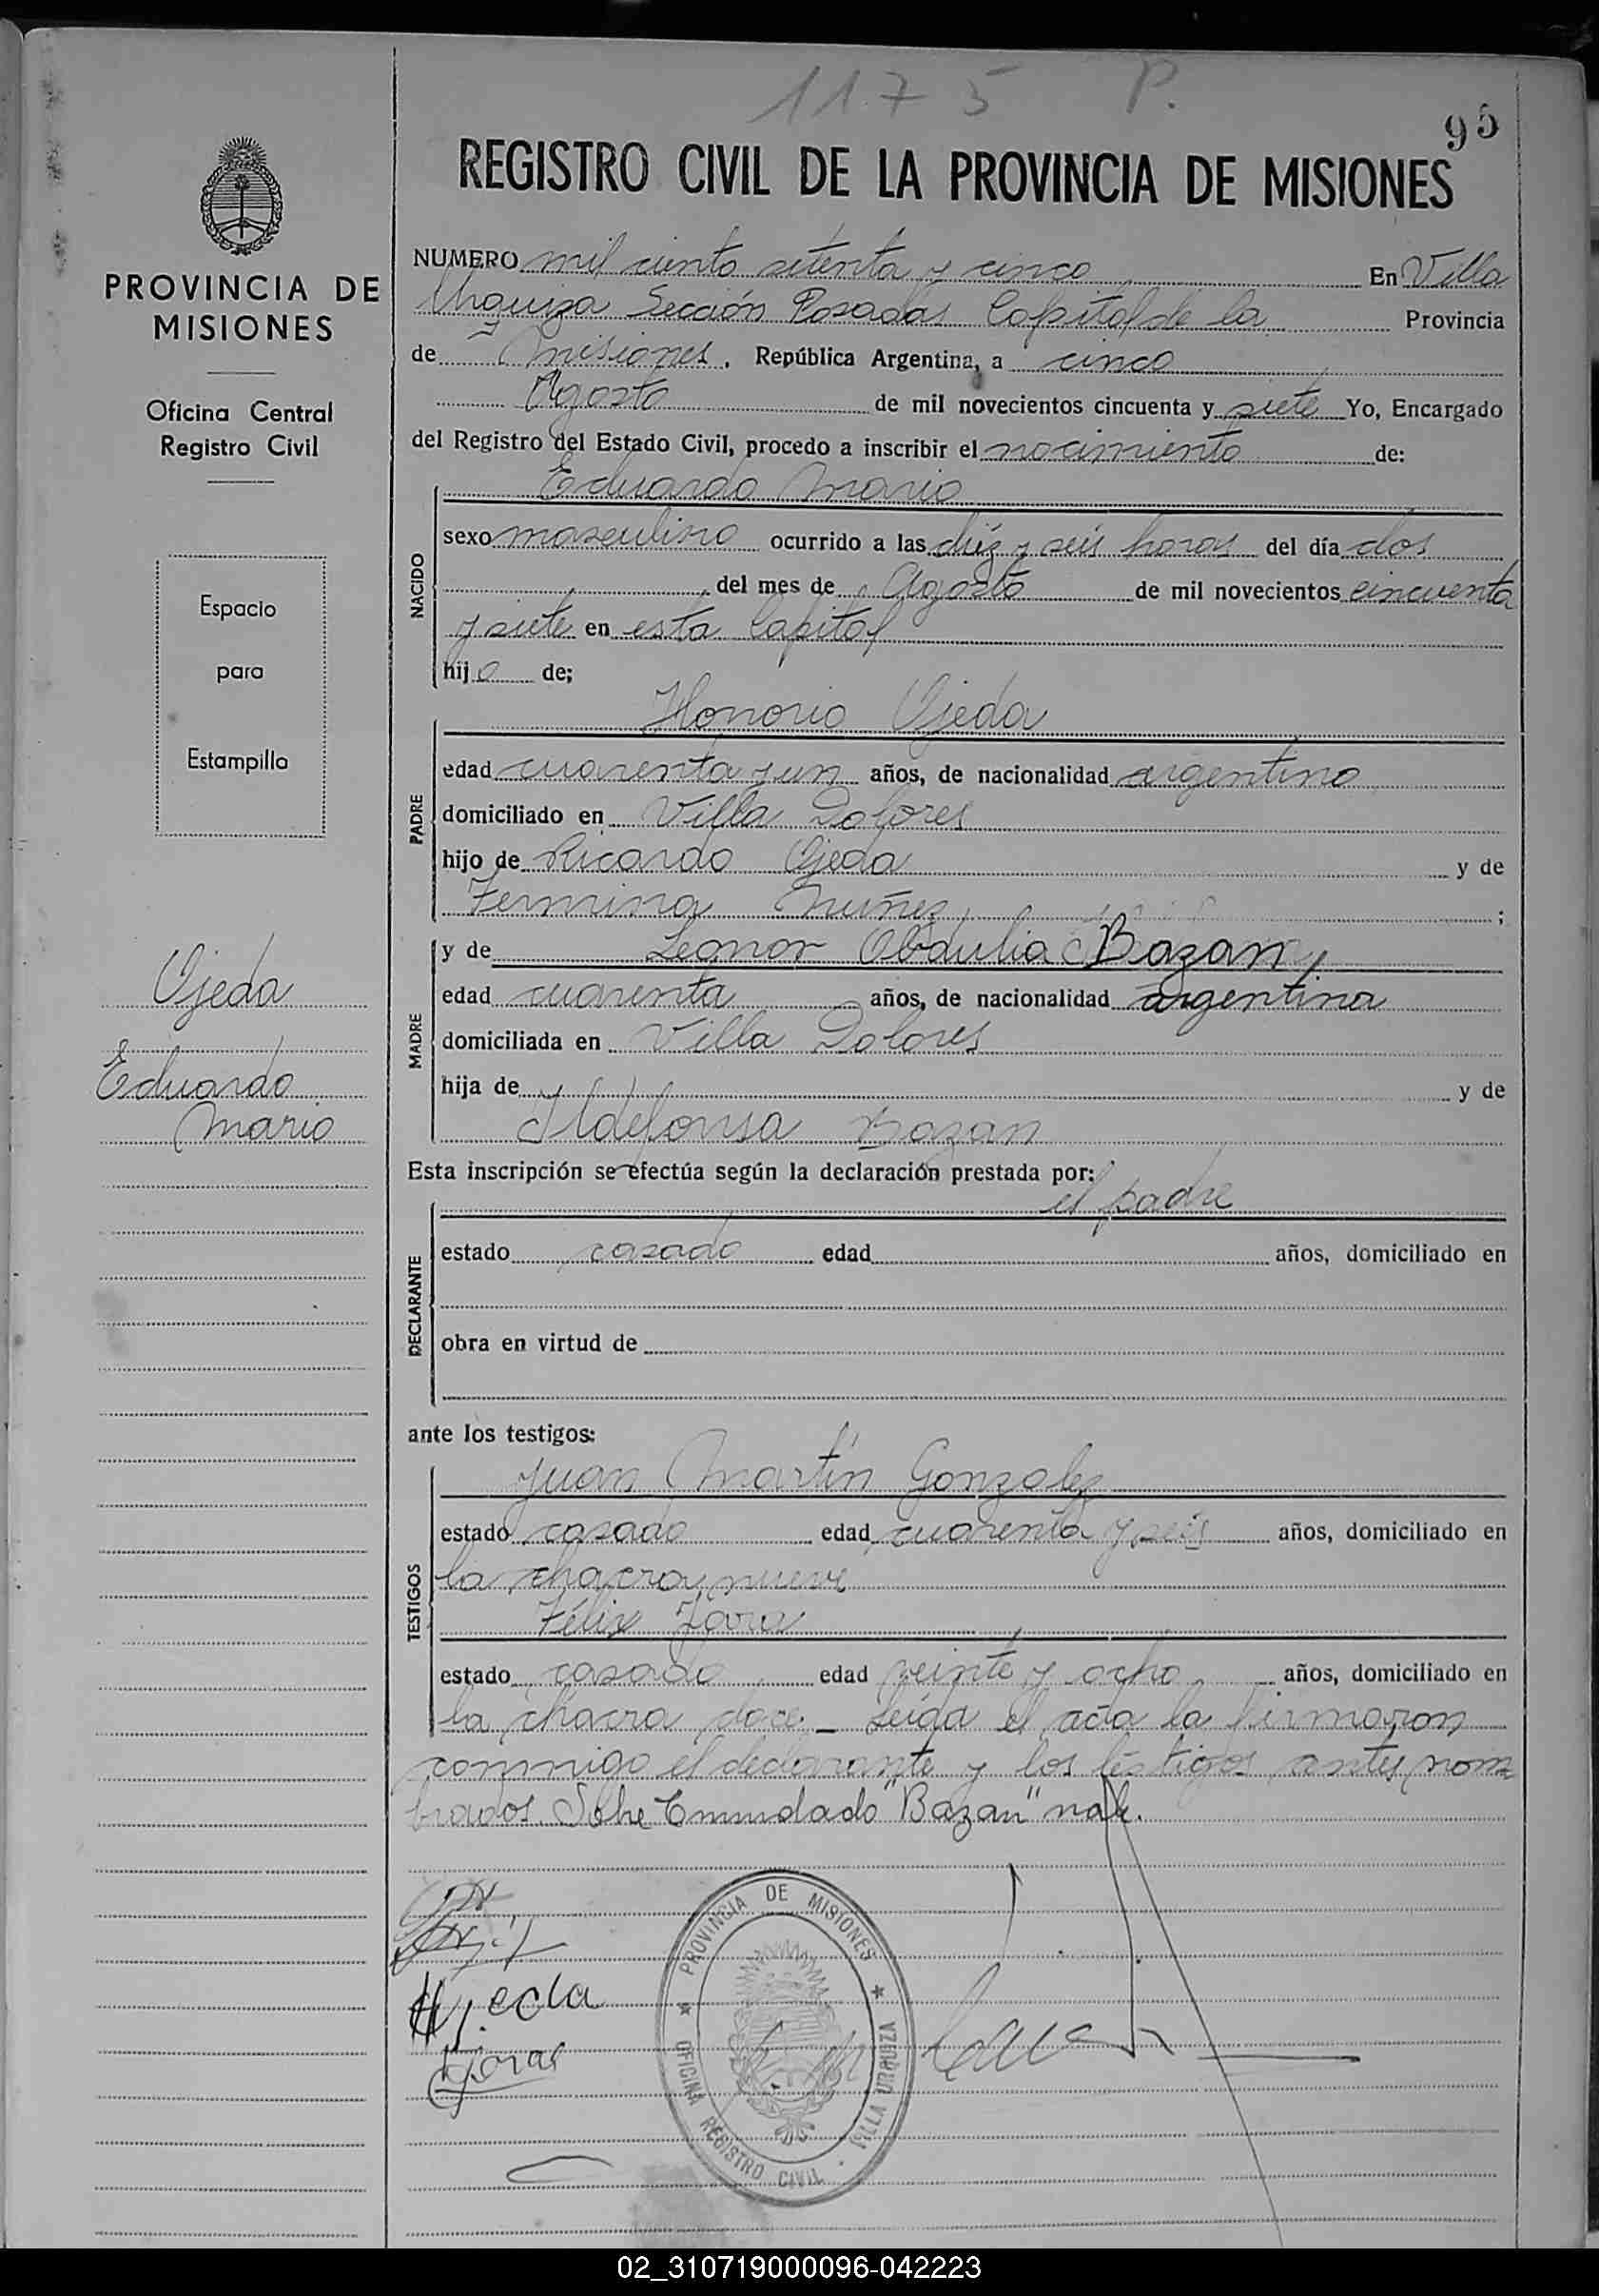 1175 P.
95
REGISTRO CIVIL DE LA PROVINCIA DE MISIONES
PROVINCIA DE
MISIONES
Oficina Central
Registro Civil
Espacio
para
Estampilla
Ojeda
Eduardo
Mario
NUMERO mil ciento setenta y cinco En Villa
Urquiza Sección Posadas Capital de la Provincia
de Misiones, República Argentina, a cinco
Agosto de mil novecientos cincuenta y siete Yo, Encargado
del Registro del Estado Civil, procedo a inscribir el nacimiento de:
Eduardo Mario
NACIDO
sexo masculino ocurrido a las diéz y seis horas del día dos
del mes de Agosto de mil novecientos cincuenta
y siete en esta Capital
hijo de;
Honorio Ojeda
PADRE
edad cuarenta y un años, de nacionalidad argentino
domiciliado en Villa Dolores
hijo de Ricardo Ojeda y de
Fermina Nuñez ;
MADRE
y de Leonor Obdulia Bazan,
edad cuarenta años, de nacionalidad argentina
domiciliada en Villa Dolores
hija de y de
Ildefonsa Bazan
Esta inscripción se efectúa según la declaración prestada por:
el padre
DECLARANTE
estado casado edad años, domiciliado en
obra en virtud de
ante los testigos:
Juan Martín Gonzalez
TESTIGOS
estado casado edad cuarenta y seis años, domiciliado en
la chacra nueve
Félix Jara
estado casado edad veinte y ocho años, domiciliado en
la chacra doce _ Leída el acta la firmaron
conmigo el declarante y los testigos antes nom
brados. Sobre Enmendado "Bazan" vale.
HOjeda
PROVINCIA DE MISIONES
OFICINA REGISTRO CIVIL · VILLA URQUIZA
02_310719000096-042223